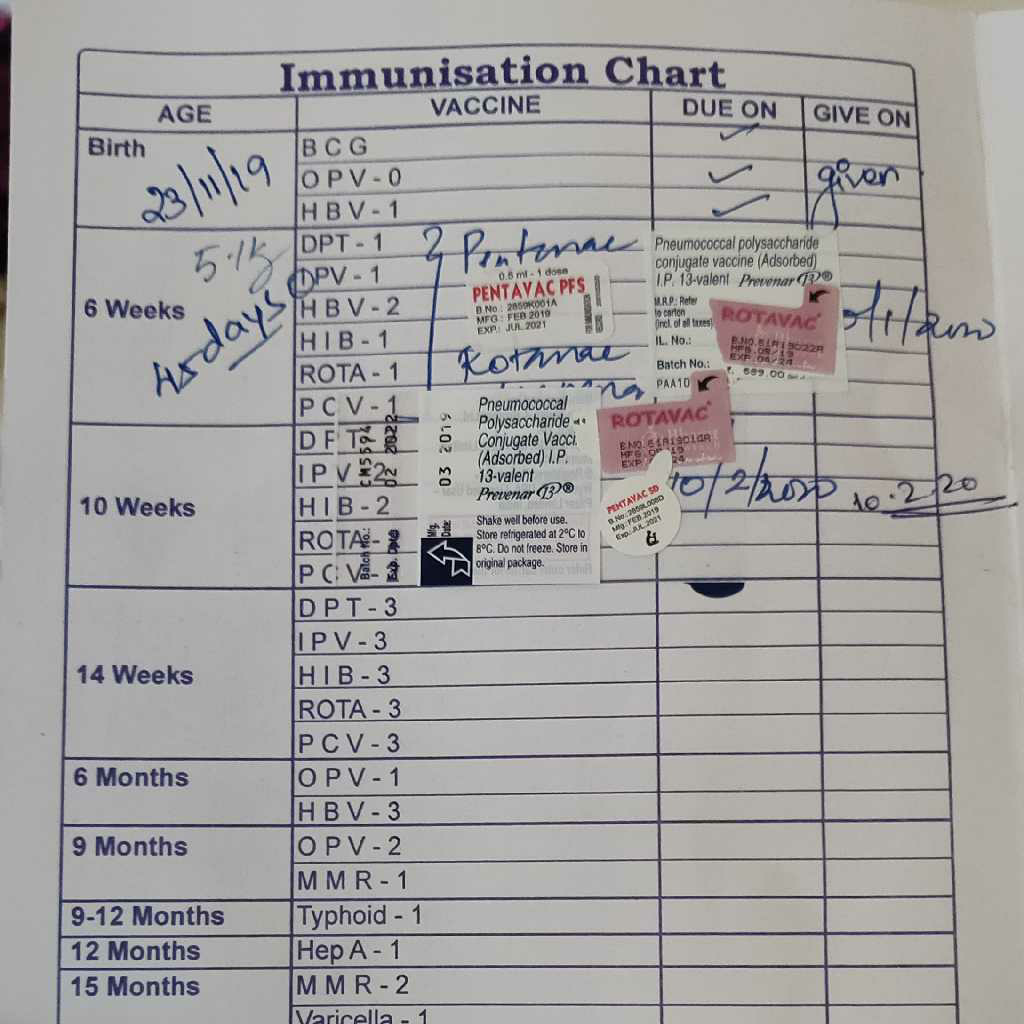 Immunisation Chart
AGE VACCINE DUE ON GIVE ON
Birth BCG ✓
23/11/19 OPV-0 ✓ given
HBV-1 ✓
DPT-1
IPV-1
6 Weeks HBV-2
45 days HIB-1
ROTA-1
PCV-1
0.5 ml - 1 dose
PENTAVAC PFS
B.No.: 2859K001A
MFG.: FEB.2019
EXP.: JUL.2021
Pneumococcal polysaccharide
conjugate vaccine (Adsorbed)
I.P. 13-valent Prevenar 13®
M.R.P.: Refer
to carton
(incl. of all taxes)
IL. No.:
Batch No.:
PAA10
ROTAVAC
589.00
/1/2020
10 Weeks
IPV-2
HIB-2
ROTA
PCV
CM5594
02 2022
Batch No.:
Exp. Date
03 2019
Mfg.
Date:
Pneumococcal
Polysaccharide
Conjugate Vacci.
(Adsorbed) I.P.
13-valent
Prevenar 13®
Shake well before use.
Store refrigerated at 2°C to
8°C. Do not freeze. Store in
original package.
ROTAVAC
PENTAVAC SD
Mfg.: FEB.2019
Exp.: JUL.2021
10/2/2020 10.2.20
14 Weeks
DPT-3
IPV-3
HIB-3
ROTA-3
PCV-3
6 Months OPV-1
HBV-3
9 Months OPV-2
MMR-1
9-12 Months Typhoid-1
12 Months Hep A-1
15 Months MMR-2
Varicella-1